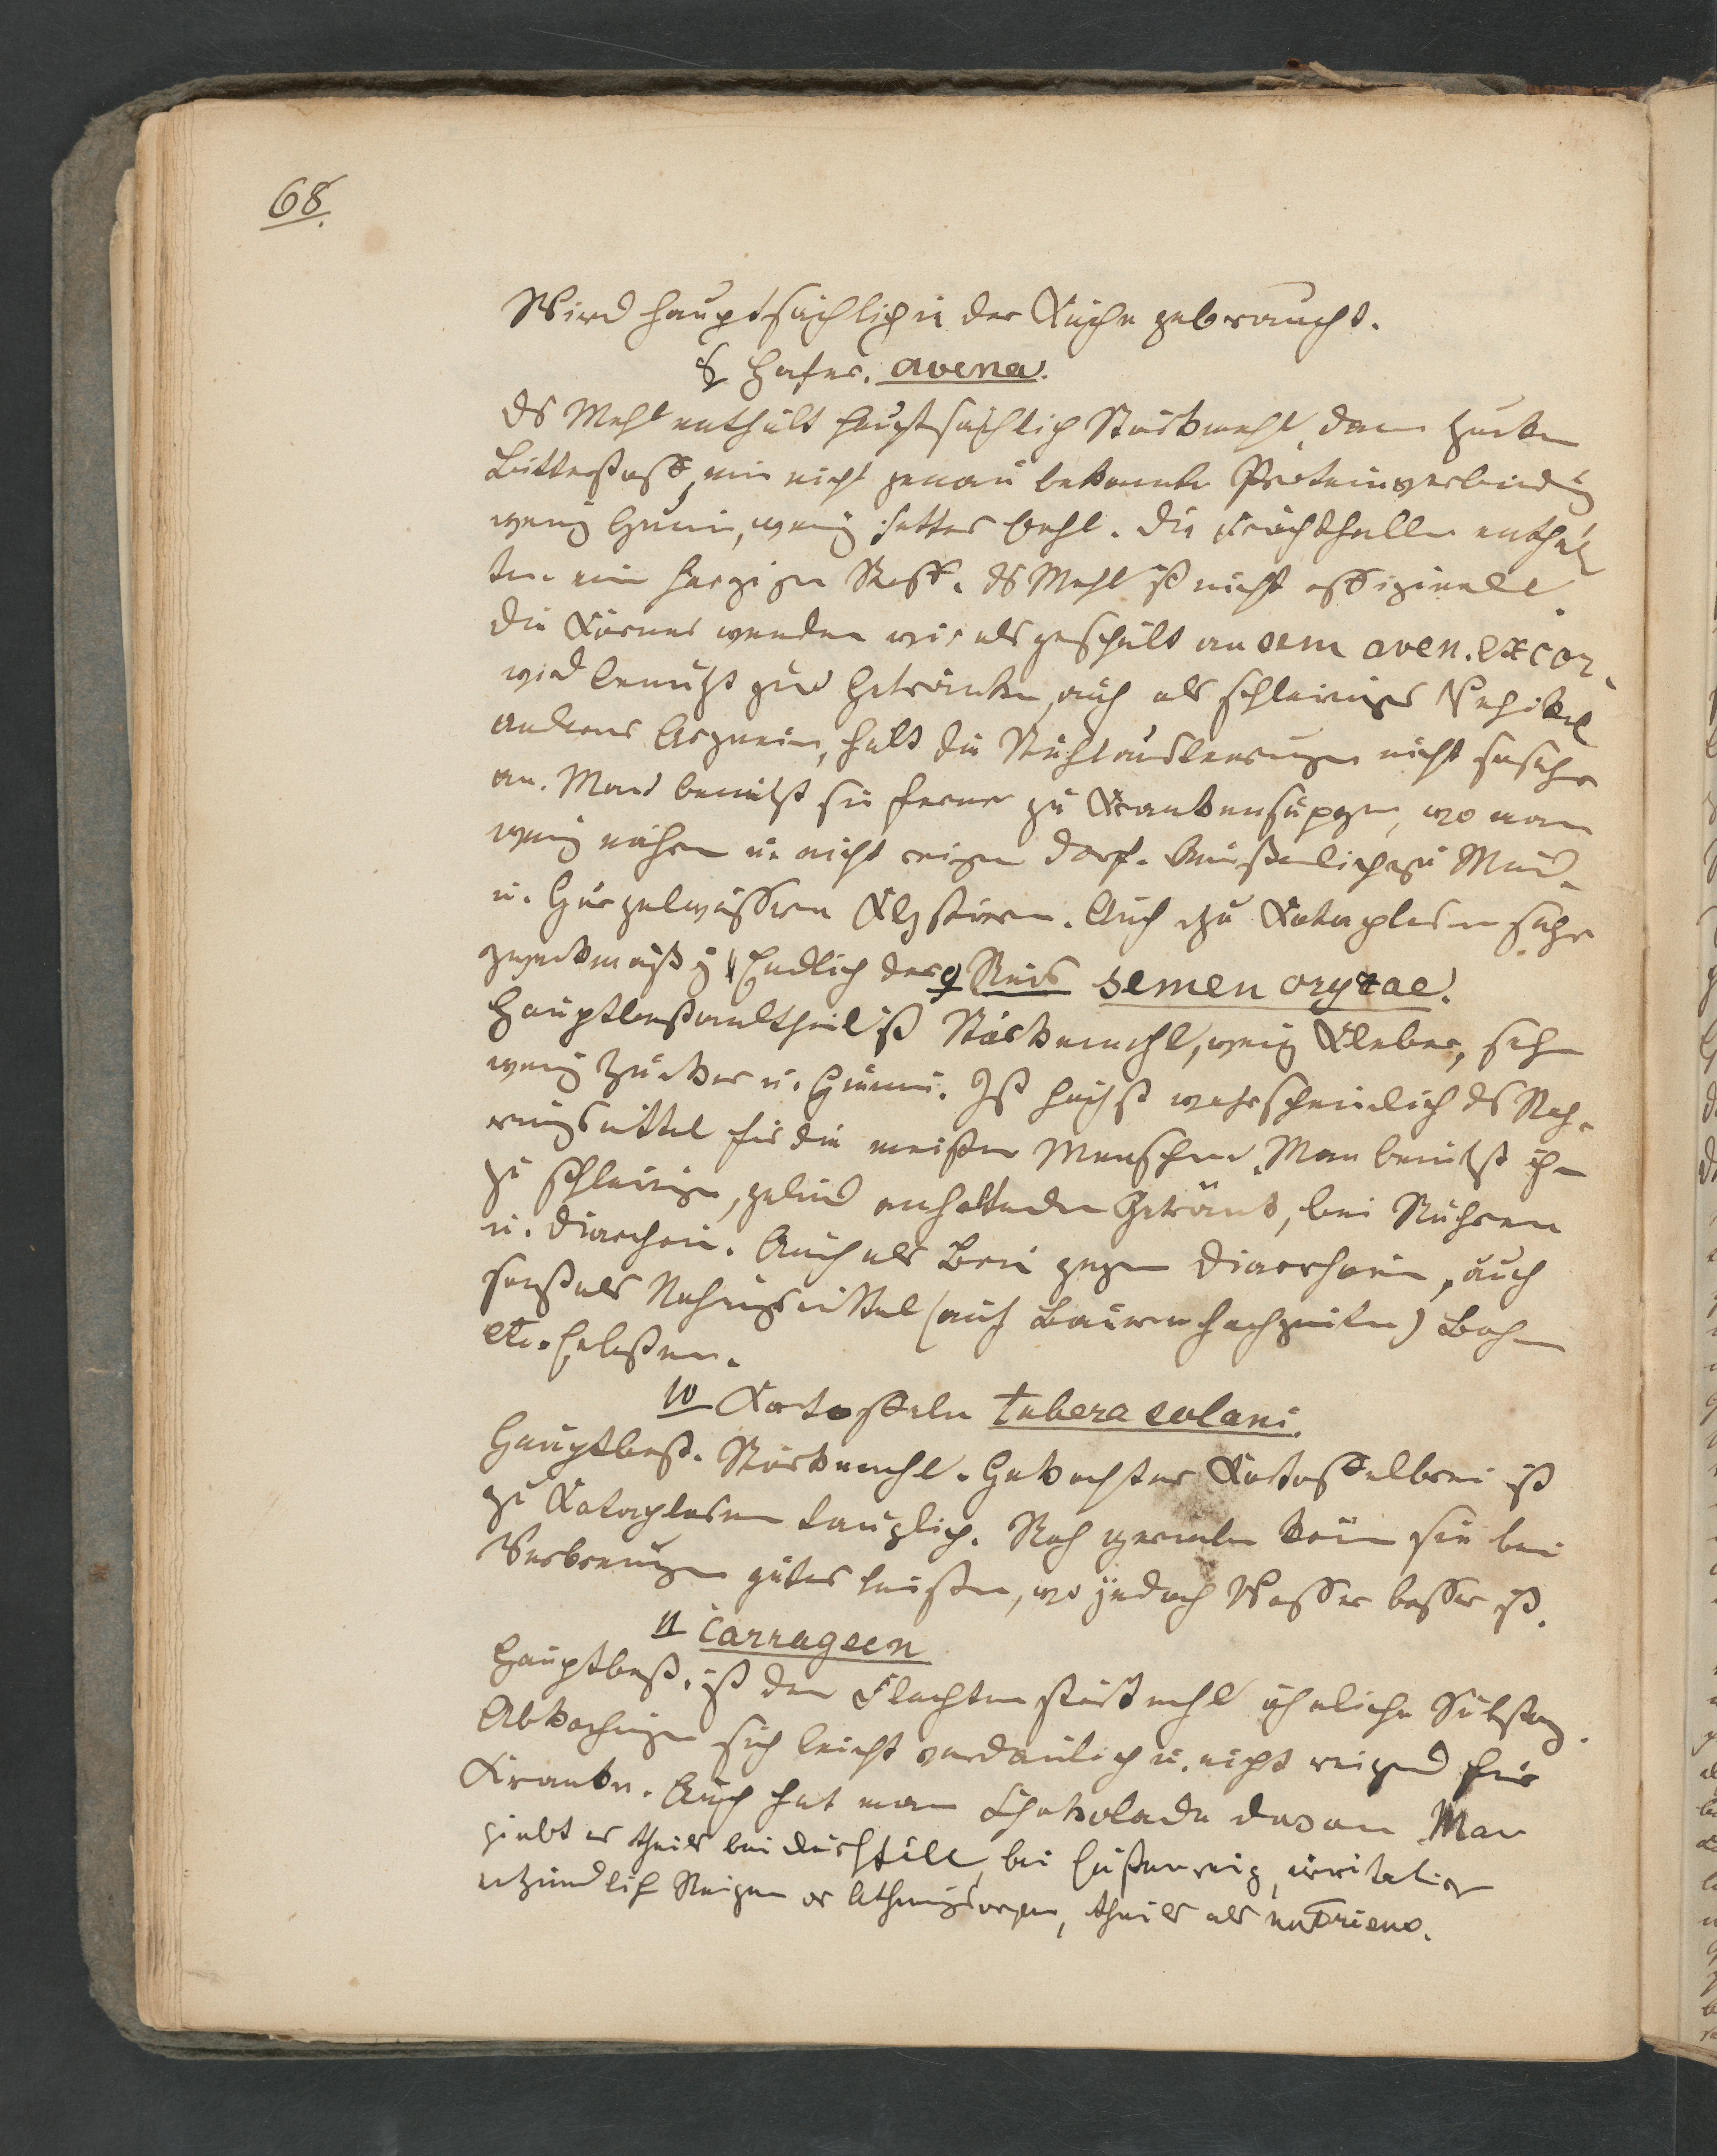 68.
Wird hauptsächlich in der Küche gebraucht.
8 Hafer. avena.
Ds Mehl enthält hauptsächlich Stärkmehl, dann Zucker
Bitterstoff, eine nicht genau bekannte Proteinverbindung
wenig Gumi, wenig fettes Oehl. Die Fruchthüllen enthal
ten ein harziger Stoff. Ds Mehl ist nicht offizinell.
Die Körner wenden wir als geschält an sem aven. excor.
wird benutzt zu Getränken, auch als schleimiges Vehikel
anderer Arzneien, hält die Stuhlausleerungen nicht so sehr
an. Man benützt sie ferner zu Krankensuppen, wo man
wenig nähren u. nicht reizen darf. Äusserlich zu Mund-
u. Gurgelwässern Klystiren. Auch zu Kataplasm sehr
zweckmässig. Endlich der 9 Reis semen oryzae.
Hauptbestandtheil ist Stärkemehl, wenig Kleber, sehr
wenig Zucker u. Gummi. Ist höchst wahrscheinlich ds Nah-
rungsmittel für die meisten Menschen. Man benützt ihn
zu schleimigen, gelind anhaltenden Getränk, bei Ruhren
u. Diarrhoen. Auch als Brei gegen Diarrhoen, auch
sonst als Nahrungsmittel (auf Bauernhochzeiten)
etc.
10 Kartoffeln tubera solani.
Hauptbest. Stärkemehl. Gekochter Kartoffelbrei ist
zu Kataplasmen tauglich. Roh gerieben könn sie bei
Verbrennungen gutes leisten, wo jedoch Wasser besser ist.
11 Carrageen
Hauptbest. ist dem Flechtenstärkmehl ähnliche Substanz.
Abkochungen sich leicht verdaulich u. nicht reizend für
Kranke. Auch hat man Chokolade davon. Man
giebt es theils bei Durchfäll, bei Hustenreiz, irritation
entzündlich Reizen der Athmungsorgan, theils als nutriens.